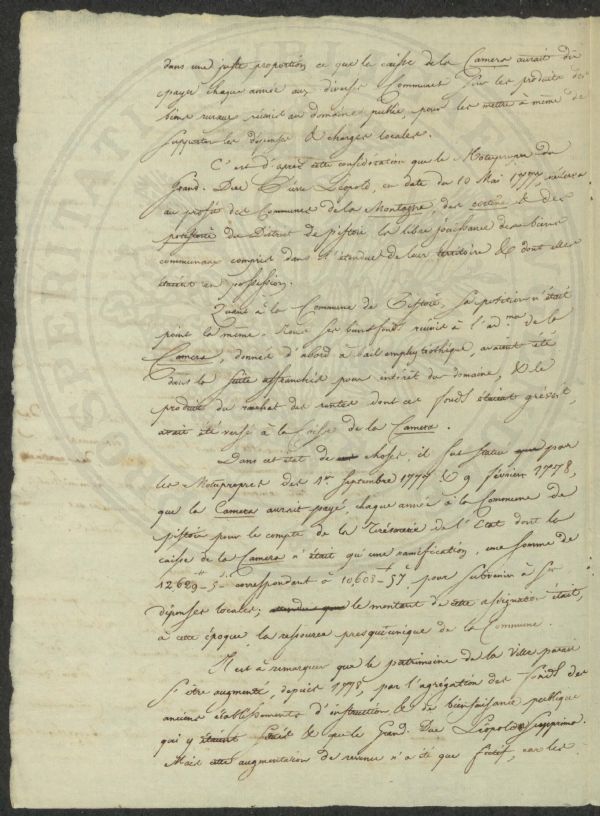 dans une juste proportion ce que la caisse de la Camera aurait dû
payer chaque année aux diverses Communes pour les produits des
biens ruraux réunis au domaine public, pour les mettre à même de
supporter les dépenses & charges locales.
C'est d'après cette considération que le Motuproprio du
Grand-Duc Pierre Léopold, en date du 10 Mai 1777,
au profit des Communes de la Montagne, des cortine & des
potesterie du District de Pistoie, la libre jouissance des biens
communaux compris dans l'étendue de leur territoire & dont elles
étaient en possession.
Quant à la Commune de Pistoie, sa position n'était
point la même. Tous ses biens fonds réunis à l'ad.on de la
Camera, donnés d'abord à bail emphytéothique, avaient été
dans la suite affranchis pour intérêt du domaine, & le
produit du rachat des rentes dont ces fonds étaient grévés,
avait été versé à la Caisse de la Camera.
Dans cet état de choses, il fut statué par
les Motupropres des 1er Septembre 1777 & 9 février 1778,
que la Camera aurait payé, chaque année à la Commune de
Pistoie pour le compte de la Trésorerie de l'Etat dont la
caisse de la Camera n'était qu'une ramification, une somme de
12629 - 5 correspondant à 10608 - 57 pour subvenir à ses
dépenses locales; le montant de cette assignation était,
à cette époque la ressource presqu'unique de la Commune.
Il est à remarquer que le patrimoine de la Ville parait
s'être augmenté, depuis 1778, par l'agrégation des fonds des
anciens établissements d'instruction & de bienfaisance publique
qui y étaient & que le Grand-Duc Léopold supprima.
Mais cette augmentation de revenu n'a été que fictif, car les